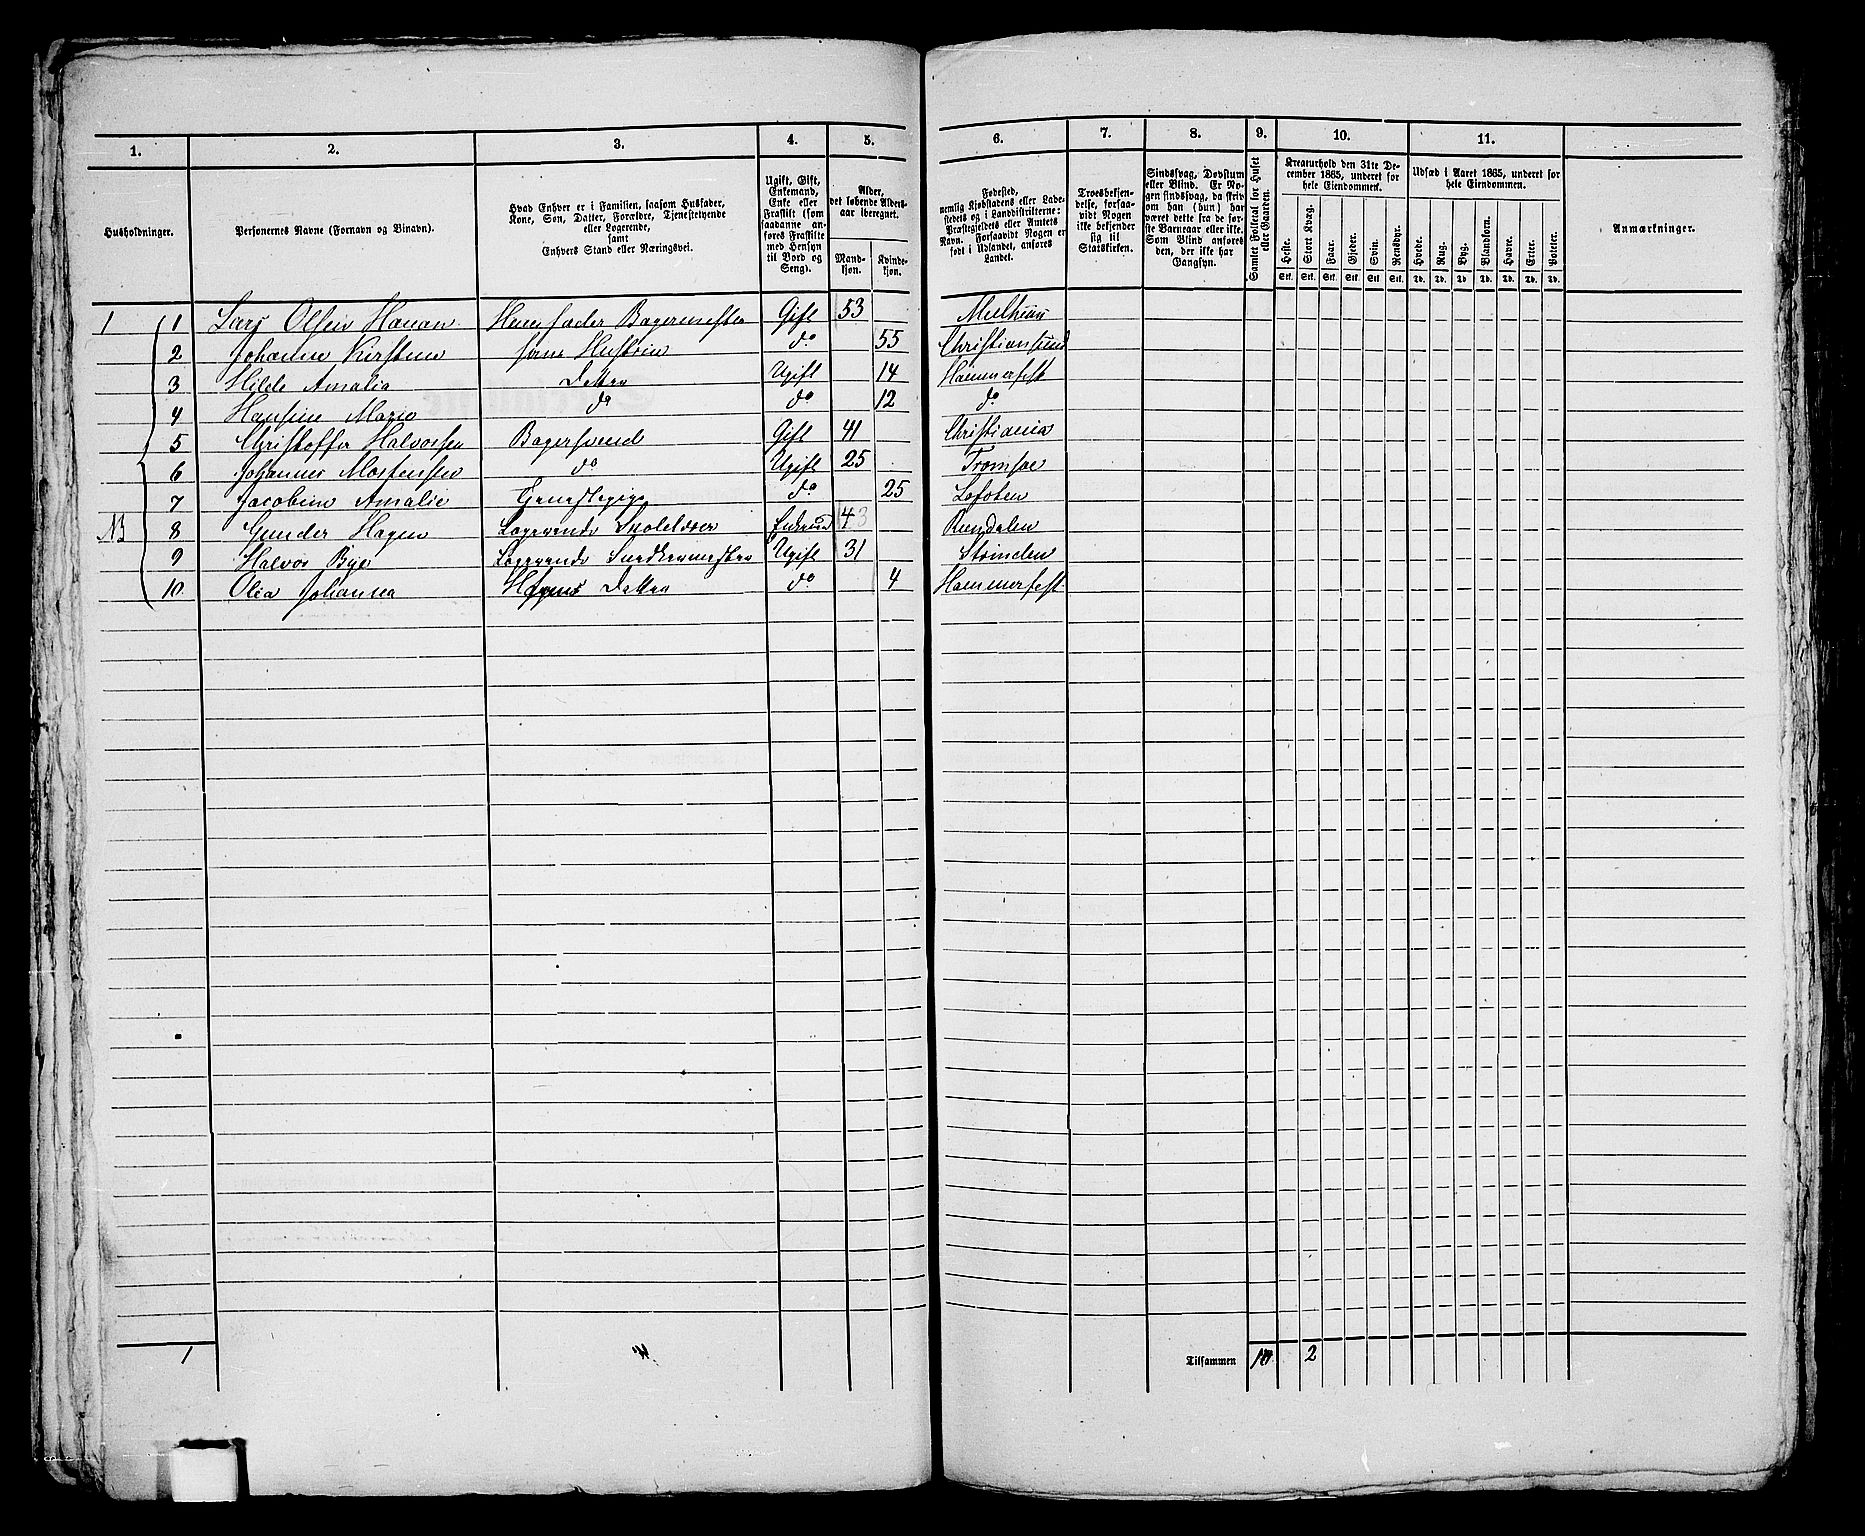 1. 2. 3. 4. 5. 6. 7. 8. 9. 10. 11.
Husholdninger.
Personernes Navne (Fornavn og Binavn).
Hvad Enhver er i Familien, saasom Husfader,
Kone, Søn, Datter, Forældre, Tjenestetyende
eller Logerende,
samt
Enhvers Stand eller Næringsvei.
Ugift, Gift,
Enkemand,
Enke eller
Fraskilt (som
saadanne an-
føres Fraskilte
med Hensyn
til Bord og
Seng).
Alder,
det løbende Alders-
aar iberegnet.
Mand-
kjøn.
Kvinde-
kjøn.
Fødested,
nemlig Kjøbstadens eller Lade-
stedets og i Landdistrikterne:
Præstegjeldets eller Amtets
Navn. Forsaavidt Nogen er
født i Udlandet, anføres
Landet.
Troesbekjen-
delse, forsaa-
vidt Nogen
ikke bekjender
sig til
Statskirken.
Sindssvag, Døvstum
eller Blind. Er No-
gen sindssvag, da skriv
om han (hun) har
været dette fra de før-
ste Barneaar eller ikke.
Som Blind anføres
den, der ikke har
Gangsyn.
Samlet Folketal for Huset
eller Gaarden.
Kreaturhold den 31te De-
cember 1865, underet for
hele Eiendommen.
Heste. Stort Kvæg. Faar. Gjeder. Svin. Rensdyr.
Stk. Stk. Stk. Stk. Stk. Stk.
Udsæd i Aaret 1865, underet for
hele Eiendommen.
Hvede. Rug. Byg. Blandkorn. Havre. Erter. Poteter.
Td. Td. Td. Td. Td. Td. Td.
Anmærkninger.
1 1 Lars Olsen Hanan Huusfader Bagermester Gift 53
2 Johanne Kirstine hans Hustrue do 55 Christiansund
3 Hilde Amalia Datter Ugift 14 Hammerfest
4 Hansine Marie do do 12 do
5 Christoffer Halvorsen Bagersvend Gift 41 Christiania
6 Johannes Mortensen do Ugift 25 Tromsøe
7 Jacobine Amalie Tjenestepige do 25 Lofoten
NB 8 Gunder Hagen Logerende Skolelærer 43
9 Halvor Bye Logerende Snedkermester Ugift 31 Strinden
10 Olea Johanna Hagens Datter do 4 Hammerfest
1 Tilsammen 10 2